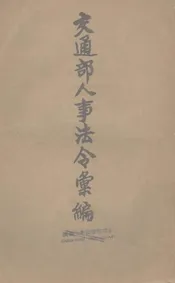 交通部人事法令彙編